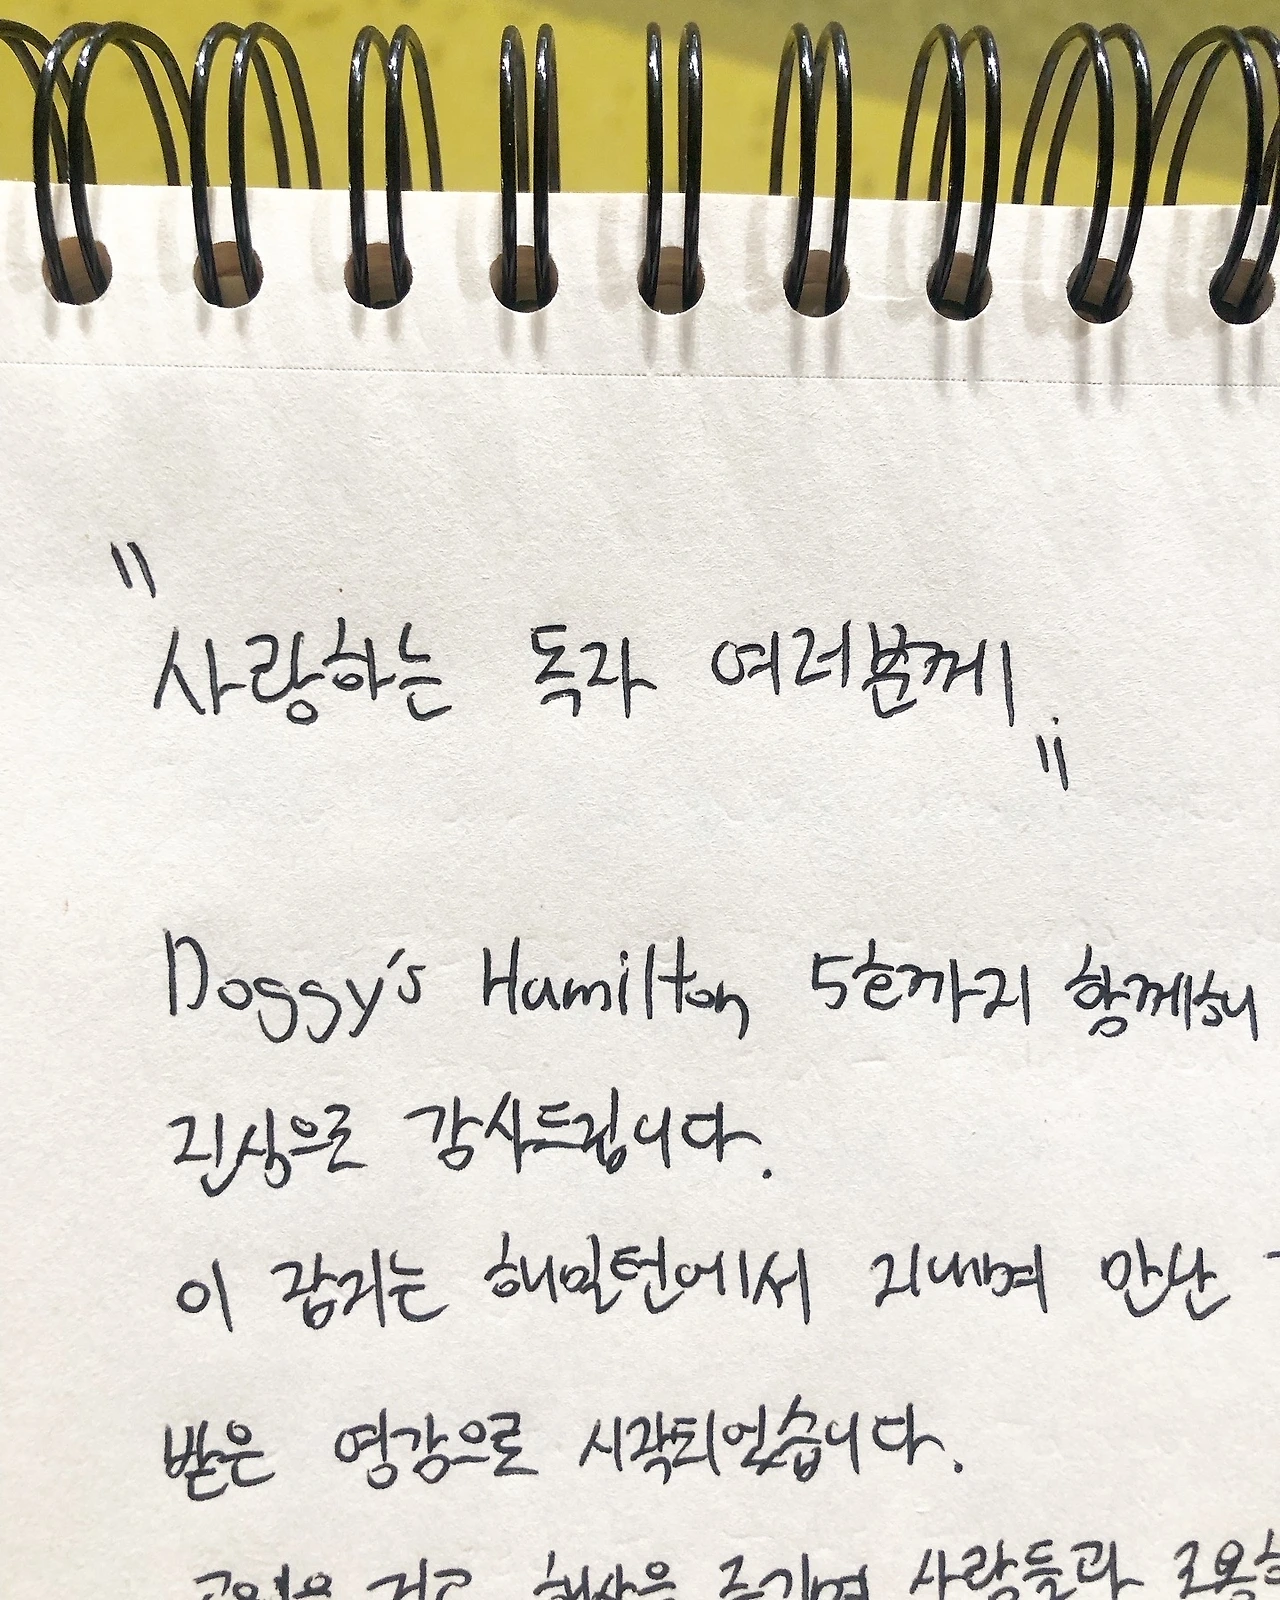 "사랑하는 독자 여러분께"
Doggy's Hamilton 5호까지 함께해
진심으로 감사드립니다.
이 잡지는 해밀턴에서 지내며 만난
받은 영감으로 시작되었습니다.
공원을 걷고 햇살을 즐기며 사람들과